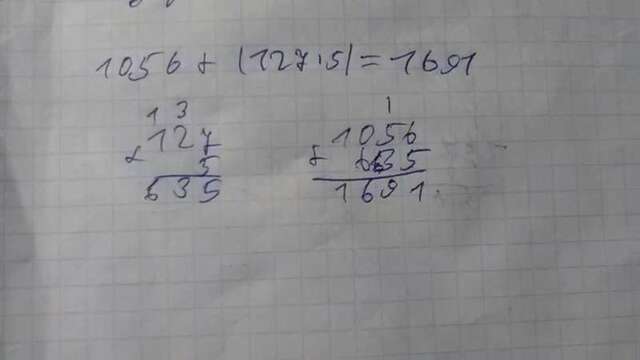 1056 + (127·5) = 1691
1 3
127
× 5
635
1
1056
+ 635
1691